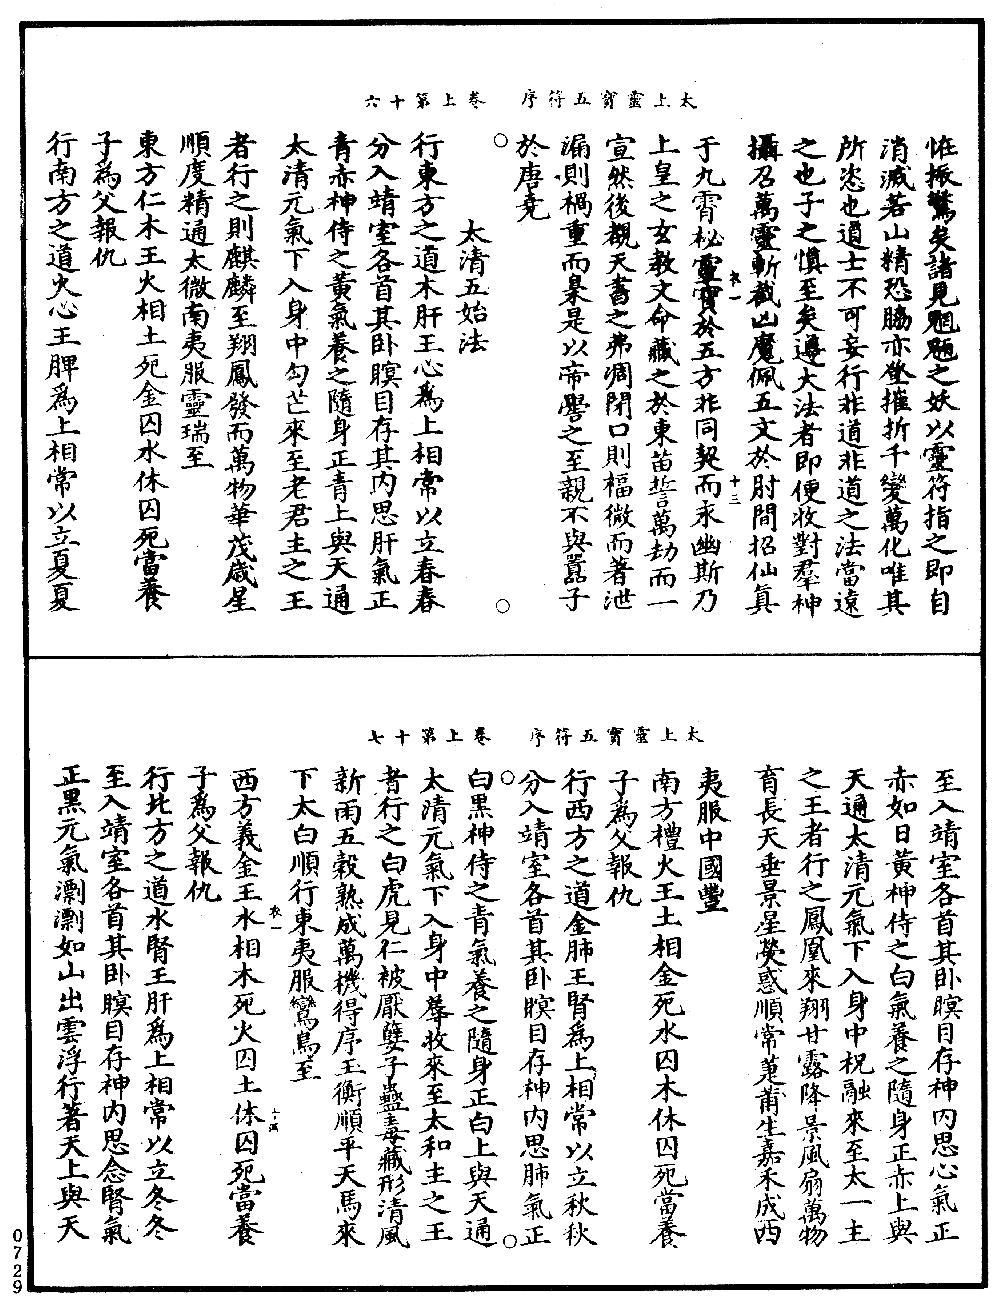 太上靈寶五符序　卷上第十六
怪振驚矣諸見魍魎之妖以靈符指之即自
消滅若山精恐脇亦坐摧折千變萬化唯其
所恣也道士不可妄行非道非道之法當遠
之也子之慎至矣遵大法者即便收對羣神
攝召萬靈斬截凶魔佩五文於肘間招仙真
于九霄秘靈寶於五方非同契而永幽斯乃
上皇之玄教文命藏之於東苗誓萬劫而一
宣然後覩天書之弗凋閉口則福微而著泄
漏則禍重而梟是以帝嚳之至親不與嚚子
於唐堯
太清五始法
行東方之道木肝王心為上相常以立春春
分入靖室各首其卧瞑目存其內思肝氣正
青赤神侍之黃氣養之隨身正青上與天通
太清元氣下入身中勾芒來至老君主之王
者行之則麒麟至翔鳳發而萬物華茂歲星
順度精通太微南夷服靈瑞至
東方仁木王火相土死金囚水休囚死當養
子為父報仇
行南方之道火心王脾為上相常以立夏夏
衣一
十三
太上靈寶五符序　卷上第十七
至入靖室各首其卧瞑目存神內思心氣正
赤如日黃神侍之白氣養之隨身正赤上與
天通太清元氣下入身中祝融來至太一主
之王者行之鳳凰來翔甘露降景風扇萬物
育長天垂景星熒惑順常萐莆生嘉禾成西
夷服中國豐
南方禮火王土相金死水囚木休囚死當養
子為父報仇
行西方之道金肺王腎為上相常以立秋秋
分入靖室各首其卧瞑目存神內思肺氣正
白黑神侍之青氣養之隨身正白上與天通
太清元氣下入身中蓐收來至太和主之王
者行之白虎見仁被厭孽子蠱毒藏形清風
新雨五穀熟成萬機得序玉衡順平天馬來
下太白順行東夷服鸞鳥至
西方義金王水相木死火囚土休囚死當養
子為父報仇
行北方之道水腎王肝為上相常以立冬冬
至入靖室各首其卧瞑目存神內思念腎氣
正黑元氣漂漂如山出雲浮行著天上與天
衣一
0729